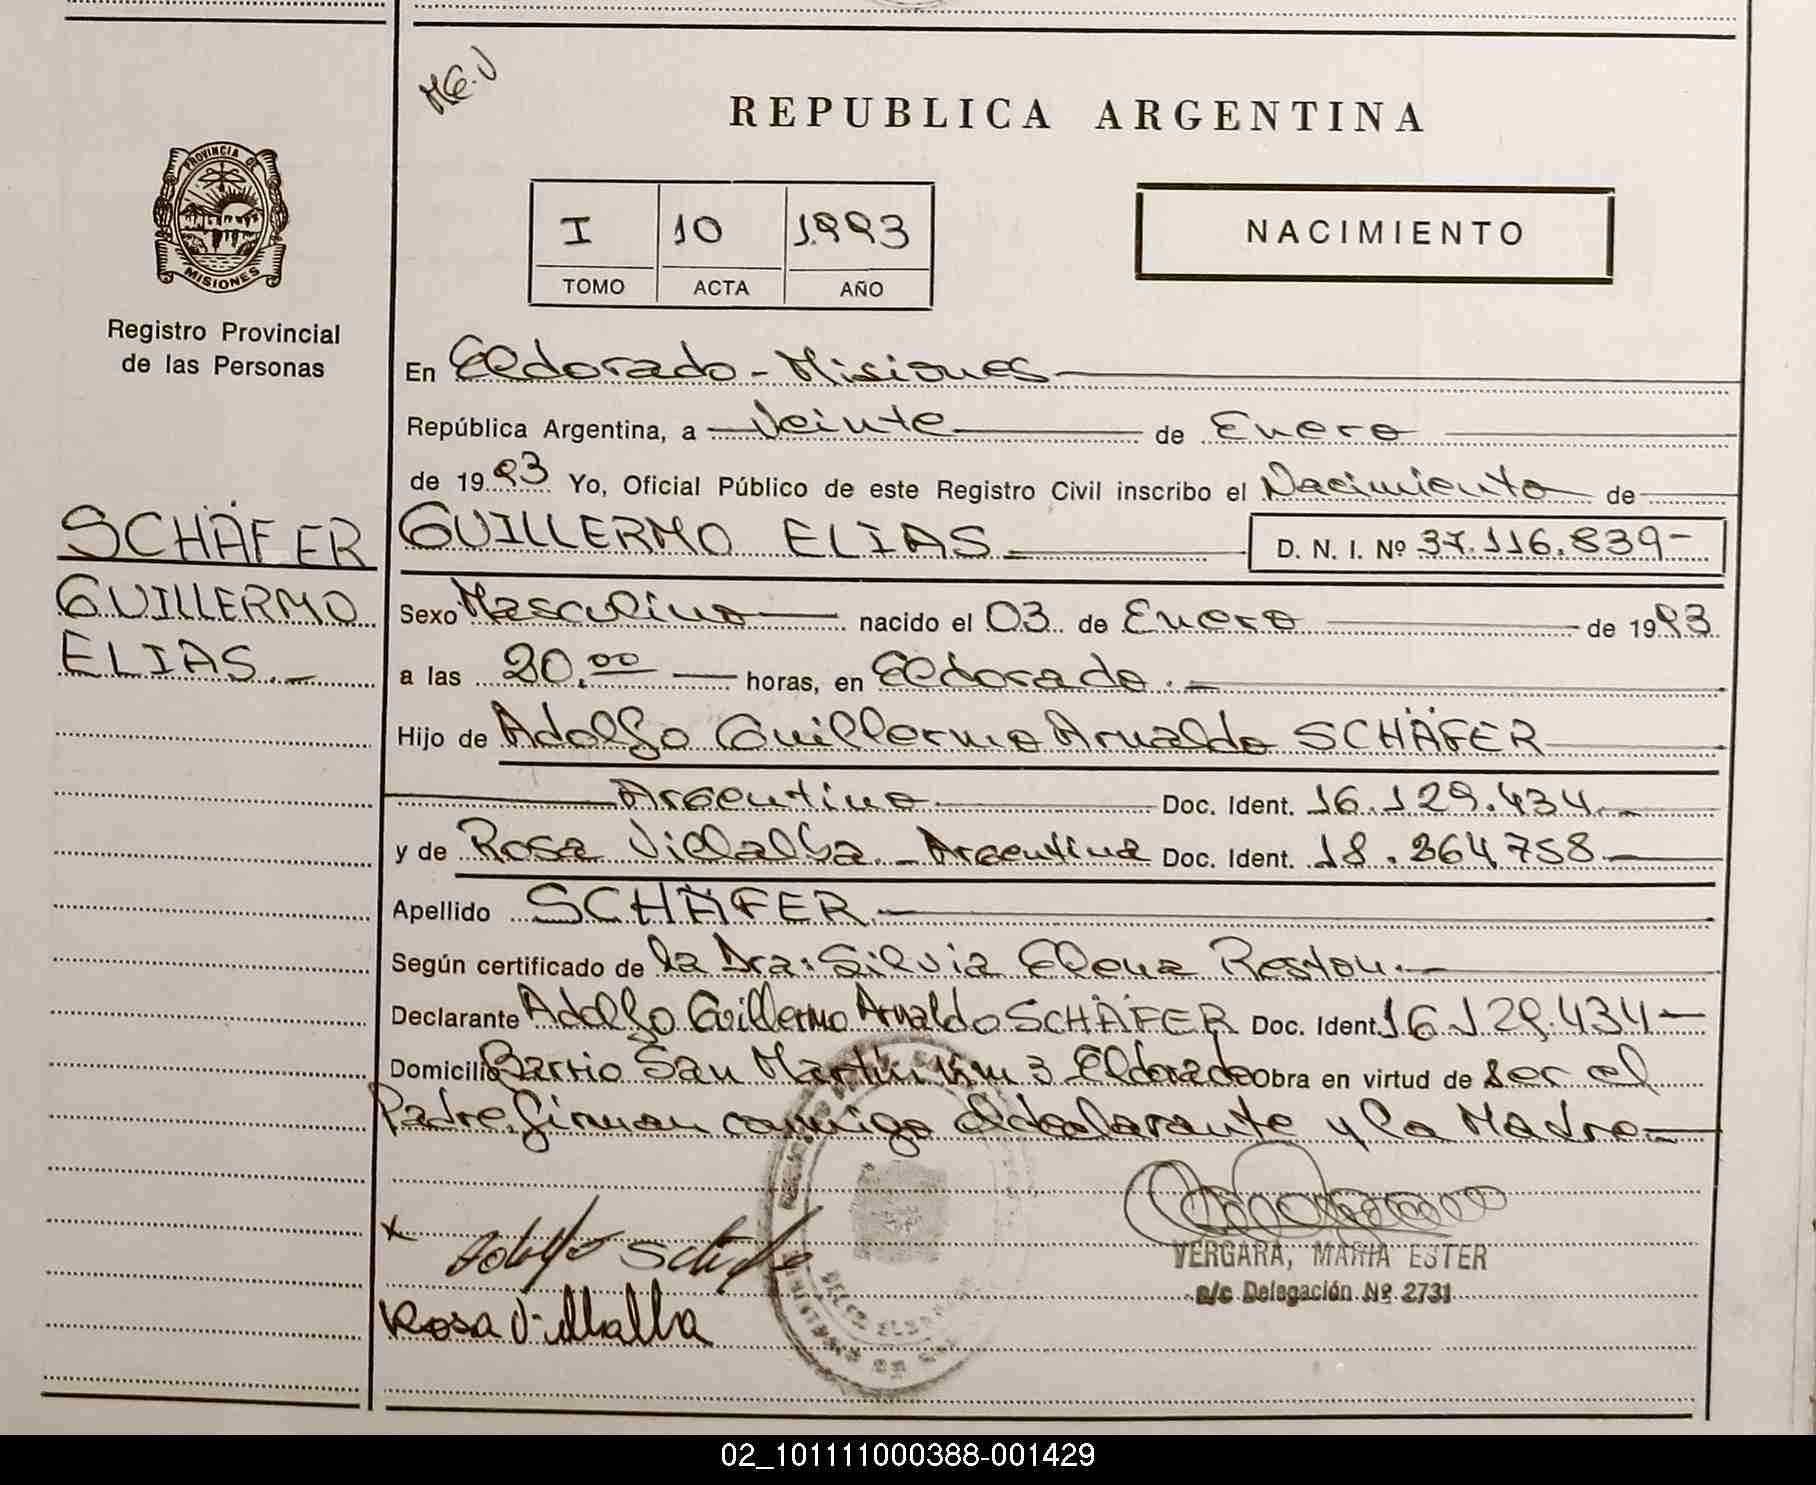 ME.V
REPUBLICA ARGENTINA
PROVINCIA DE
MISIONES
Registro Provincial
de las Personas
I 10 1993
TOMO ACTA AÑO
NACIMIENTO
En Eldorado - Misiones
República Argentina, a Veinte de Enero
de 1993 Yo, Oficial Público de este Registro Civil inscribo el Nacimiento de
SCHÄFER
GUILLERMO
ELIAS.-
GUILLERMO ELIAS D. N. I. Nº 37.116.839-
Sexo Masculino nacido el 03 de Enero de 1993
a las 20.00 horas, en Eldorado.-
Hijo de Adolfo Guillermo Arnaldo SCHÄFER
Argentino Doc. Ident. 16.129.434
y de Rosa Villalba - Argentina Doc. Ident. 18.864758
Apellido SCHÄFER
Según certificado de la Dra. Silvia Elena Reston.-
Declarante Adolfo Guillermo Arnaldo SCHÄFER Doc. Ident. 16.129.434-
Domicilio Barrio San Martín km 3 Eldorado Obra en virtud de ser el
Padre. Firman conmigo el declarante y la Madre.-
x Adolfo Schäfer
Rosa Villalba
VERGARA, MARIA ESTER
a/c Delegación Nº 2731
02_101111000388-001429